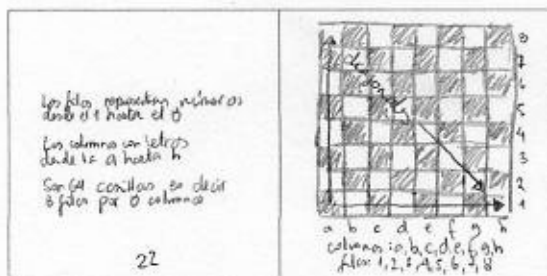 Las filas representan números
desde el 1 hasta el 8
Las columnas son letras
desde la a hasta h
Son 64 casillas es decir
8 filas por 8 columnas
22
8
7
6
5
4
3
2
1
a b c d e f g h
columnas: a, b, c, d, e, f, g, h
filas: 1, 2, 3, 4, 5, 6, 7, 8